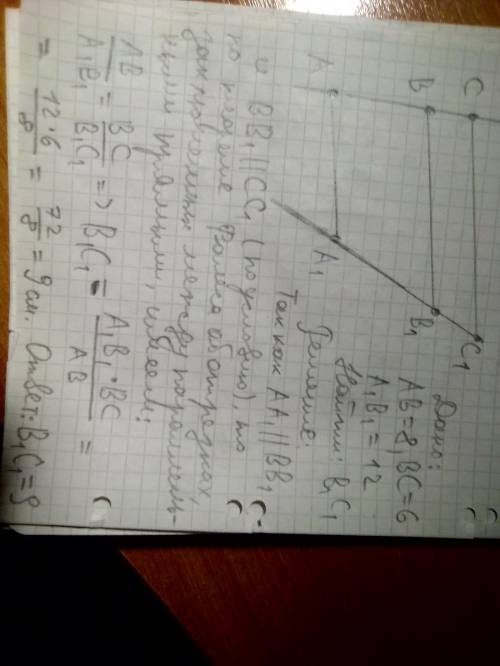 A B C
A₁ B₁ C₁
Дано:
AB=8, BC=6
A₁B₁=12
Найти: B₁C₁
Решение:
Так как AA₁||BB₁
и BB₁||CC₁ (по условию), то
по теореме Фалеса об отрезках,
заключённых между параллель-
ными прямыми, имеем:
AB/A₁B₁ = BC/B₁C₁ => B₁C₁ = A₁B₁·BC/AB =
= 12·6/8 = 72/8 = 9 см. Ответ: B₁C₁=9